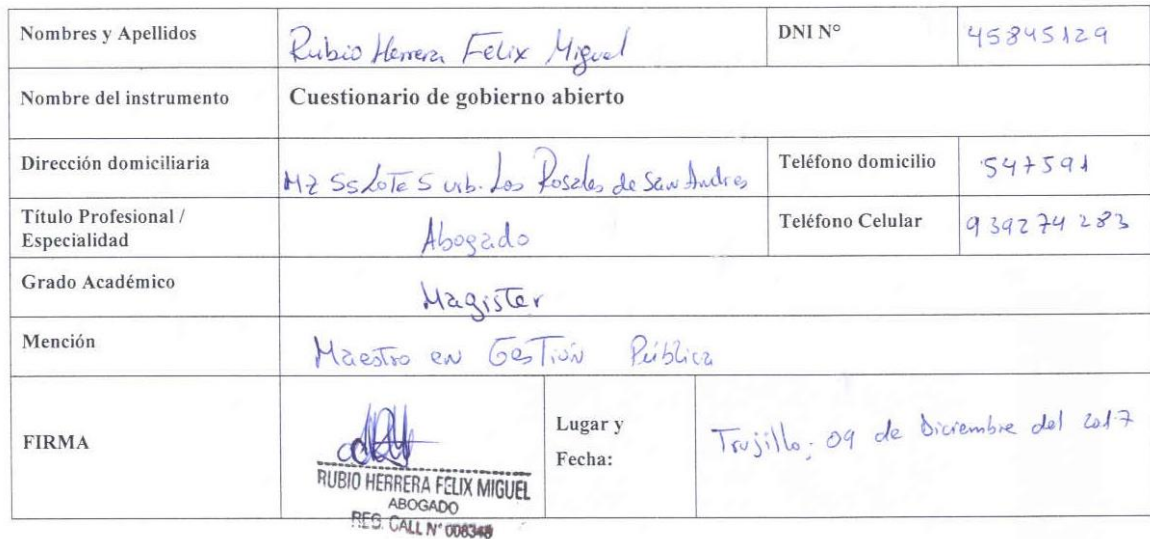 Nombres y Apellidos Rubio Herrera Felix Miguel DNI N° 45845129
Nombre del instrumento Cuestionario de gobierno abierto
Dirección domiciliaria MZ SS LOTE 5 urb. Los Rosales de San Andres Teléfono domicilio 547591
Título Profesional /
Especialidad Abogado Teléfono Celular 939274283
Grado Académico Magister
Mención Maestro en Gestión Pública
FIRMA Lugar y
Fecha: Trujillo, 09 de Diciembre del 2017
RUBIO HERRERA FELIX MIGUEL
ABOGADO
REG. CALL N° 008348